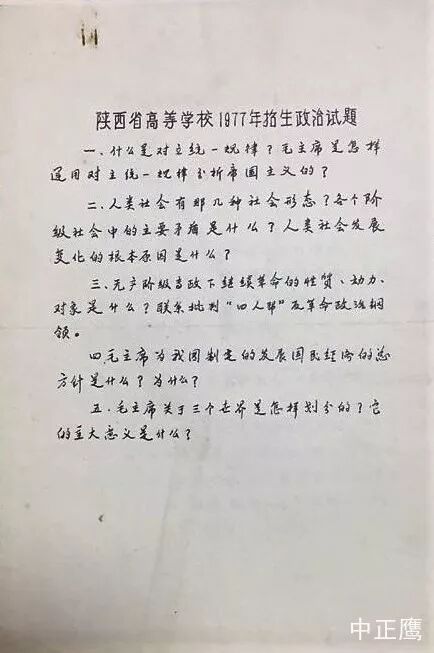 陕西省高等学校1977年招生政治试题
一、什么是对立统一规律？毛主席是怎样
运用对立统一规律分析帝国主义的？
二、人类社会有那几种社会形态？各个阶
级社会中的主要矛盾是什么？人类社会发展
变化的根本原因是什么？
三、无产阶级专政下继续革命的性质、动力、
对象是什么？联系批判“四人帮”反革命政治纲
领。
四、毛主席为我国制定的发展国民经济的总
方针是什么？为什么？
五、毛主席关于三个世界是怎样划分的？它
的重大意义是什么？
中正鹰